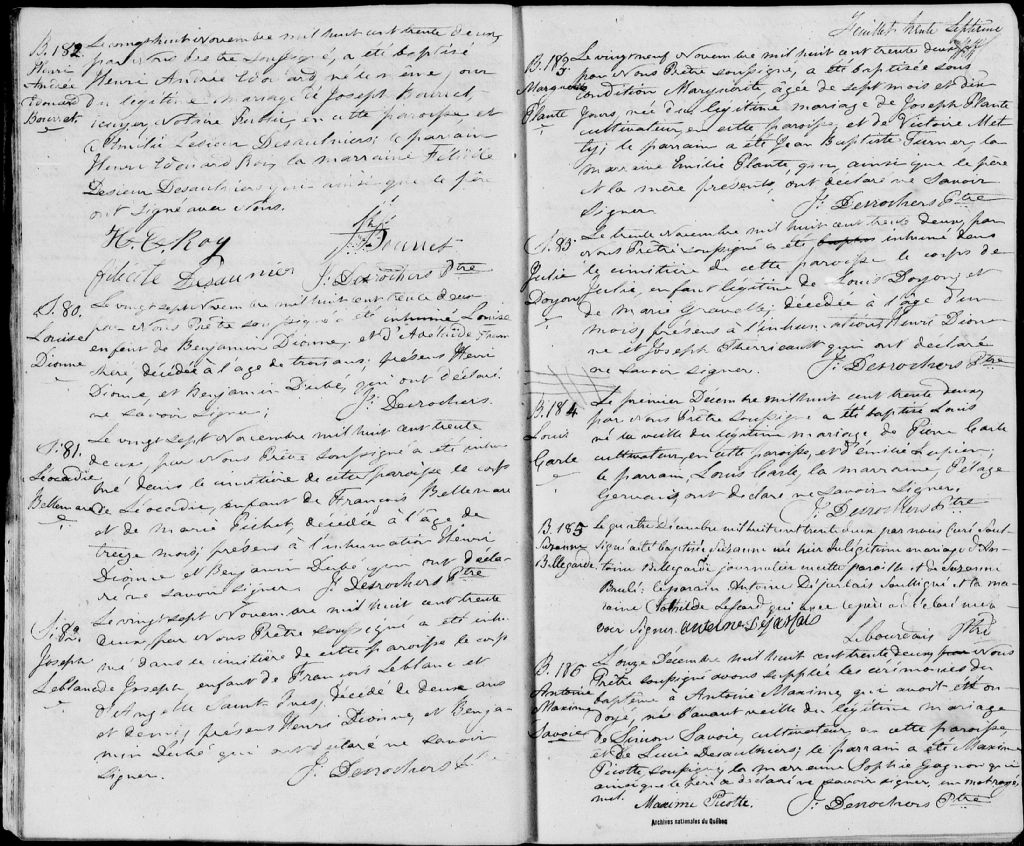 B. 182
Henri
Andrée
Edouard
Bourret
Le vingt huit Novembre mil huit cent trente deux,
par Nous Prêtre soussigné, a été baptisé
Henri Andrée Edouard, né le même jour
du légitime mariage de Joseph Bourret,
écuyer, Notaire Public, en cette paroisse et
d'Emilie Lesieur Desaulniers; le parrain
Henri Edouard Roy, la marraine Félicité
Lesieur Desaulniers qui ainsi que le père
ont signé avec Nous.
H. E. Roy
J. Bourret
félicité Desaunier
J. Desrochers Ptre
S. 80.
Louise
Dionne
Le vingt sept Novembre mil huit cent trente deux
par Nous Prêtre soussigné a été inhumé Louise
enfent de Benjamin Dionne, et d'Adelaïde
décédée à l'age de trois ans; présens Henri
Dionne, et Benjamin Dubé, qui ont déclaré
ne savoir signer;
J. Desrochers.
S. 81.
Léocadie
Bellemare
Le vingt sept Novembre mil huit cent trente
deux, par Nous Prêtre soussigné a été inhu-
mé dans le cimetière de cette paroisse le corps
de Léocadie, enfant de François Bellemare
et de Marie Pichet décédée à l'âge de
treize mois; présens à l'inhumation Henri
Dionne et Benjamin Dubé qui ont décla-
ré ne savoir signer.
J. Desrochers Ptre
S. 82.
Joseph
Leblanc
Le vingt sept Novembre mil huit cent trente
deux, par Nous Prêtre soussigné a été inhu-
mé dans le cimetière de cette paroisse le corps
de Joseph, enfant de François Leblanc et
d'Angelle Saint Yves, décédé de deux ans
et demi; présens Henri Dionne, et Benja-
min Dubé qui ont déclaré ne savoir
signer.
J. Desrochers
Feuillet trente septième
B. 183
Marguerite
Plante
Le vingt neuf Novembre mil huit cent trente deux
par Nous Prêtre soussigné, a été baptisée sous
condition Marguerite, agée de sept mois et dix
jours, née du légitime mariage de Joseph Plante
cultivateur, en cette paroisse, et de Victoire Met-
; le parrain a été Jean Baptiste Turner, la
marraine Emilie Plante, qui, ainsi que le père
et la mère présents, ont déclaré ne savoir
signer.
J. Desrochers Ptre
S. 83.
Julie
Doyon
Le trente Novembre mil huit cent trente deux, par
Nous Prêtre soussigné a été inhumé dans
le cimetière de cette paroisse le corps de
Julie, enfant légitime de Louis Doyon, et
de Marie Gravelle; décédée à l'âge d'un
mois, présens à l'inhumation, Henri Dion-
ne et Joseph Therriault qui ont déclaré
ne savoir signer.
J. Desrochers Ptre
B. 184
Louis
Carle
Le premier Décembre mil huit cent trente deux,
par nous Prêtre soussigné a été baptisé Louis
né la veille du légitime mariage de Pierre Carle
cultivateur, en cette paroisse, et d'Emélie Lupien;
le parrain, Louis Carle, la marraine, Pelage
Gervais, ont déclaré ne savoir signer.
J. Desrochers Ptre
B. 185
Suzanne
Bellegarde
Le quatre Décembre mil huit cent trente deux par nous Curé sous-
signé a été baptisée Suzanne née hier du légitime mariage d'An-
toine Bellegarde journalier en cette paroisse et de Suzanne
Paulé: le parain Antoine Déjarlais Soussigné et la ma-
raine Clothilde qui avec le père a déclaré ne sa-
voir signer.
Lebourdais Ptre
B. 186
Antoine
Maxime
Savoie
Le onze Décembre mil huit cent trente deux, Nous
Prêtre soussigné avons supplée les cérémonies du
baptême à Antoine Maxime, qui avoit été on-
doyé, né l'avant veille du légitime mariage
de Simon Savoie, cultivateur, en cette paroisse
et de Lucie Desaulniers; le parrain a été Maxime
Picotte, soussigné, la marraine Sophie Gagnon qui
ainsi que le père a déclaré ne savoir signer, un mot rayé
nul.
Maxime Picotte.
J. Desrochers Ptre
Archives nationales du Québec